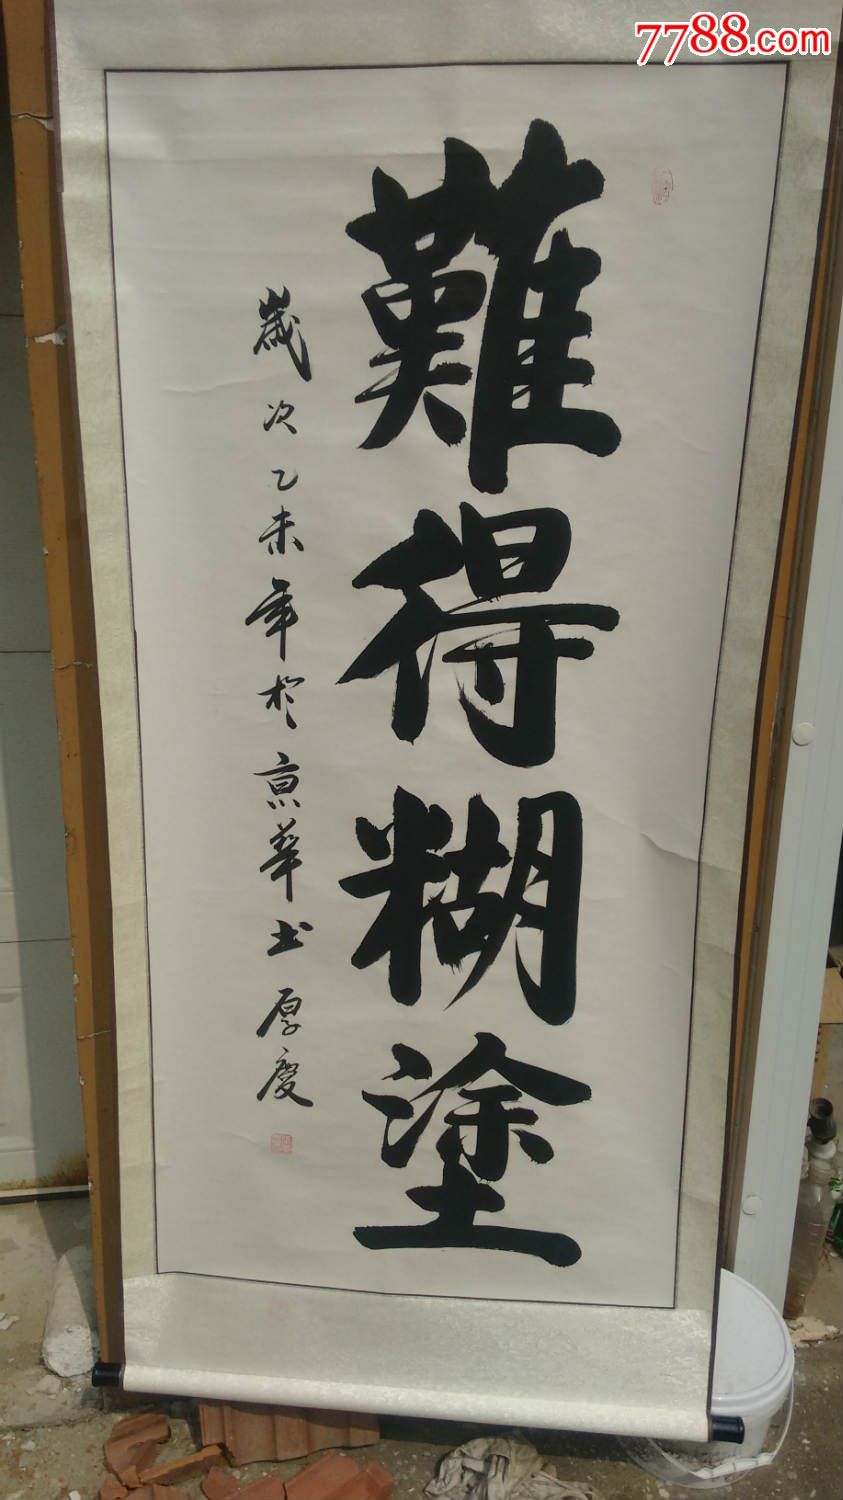 7788.com
難得糊塗
歲次乙未年於京華書厚慶